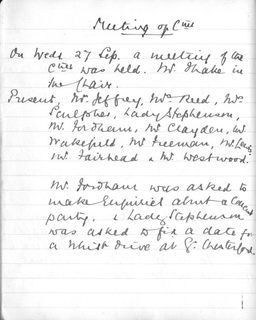 Meeting of Ctee
On Weds 27 Sep. a meeting of the
Ctee was held. Mr. Thake in
the Chair.
Present, Mr Jeffrey, Mrs Reed, Mrs
Lady Stephenson,
Mr. Fordham, Mr. Clayden, Mr
Wakefield, Mr. Freeman, Mr
Mr Fairhead & Mr Westwood.
Mr. Fordham was asked to
make Enquiries about a Concert
party. & Lady Stephenson
was asked to fix a date for
a Whist Drive at Gt. Chesterford.